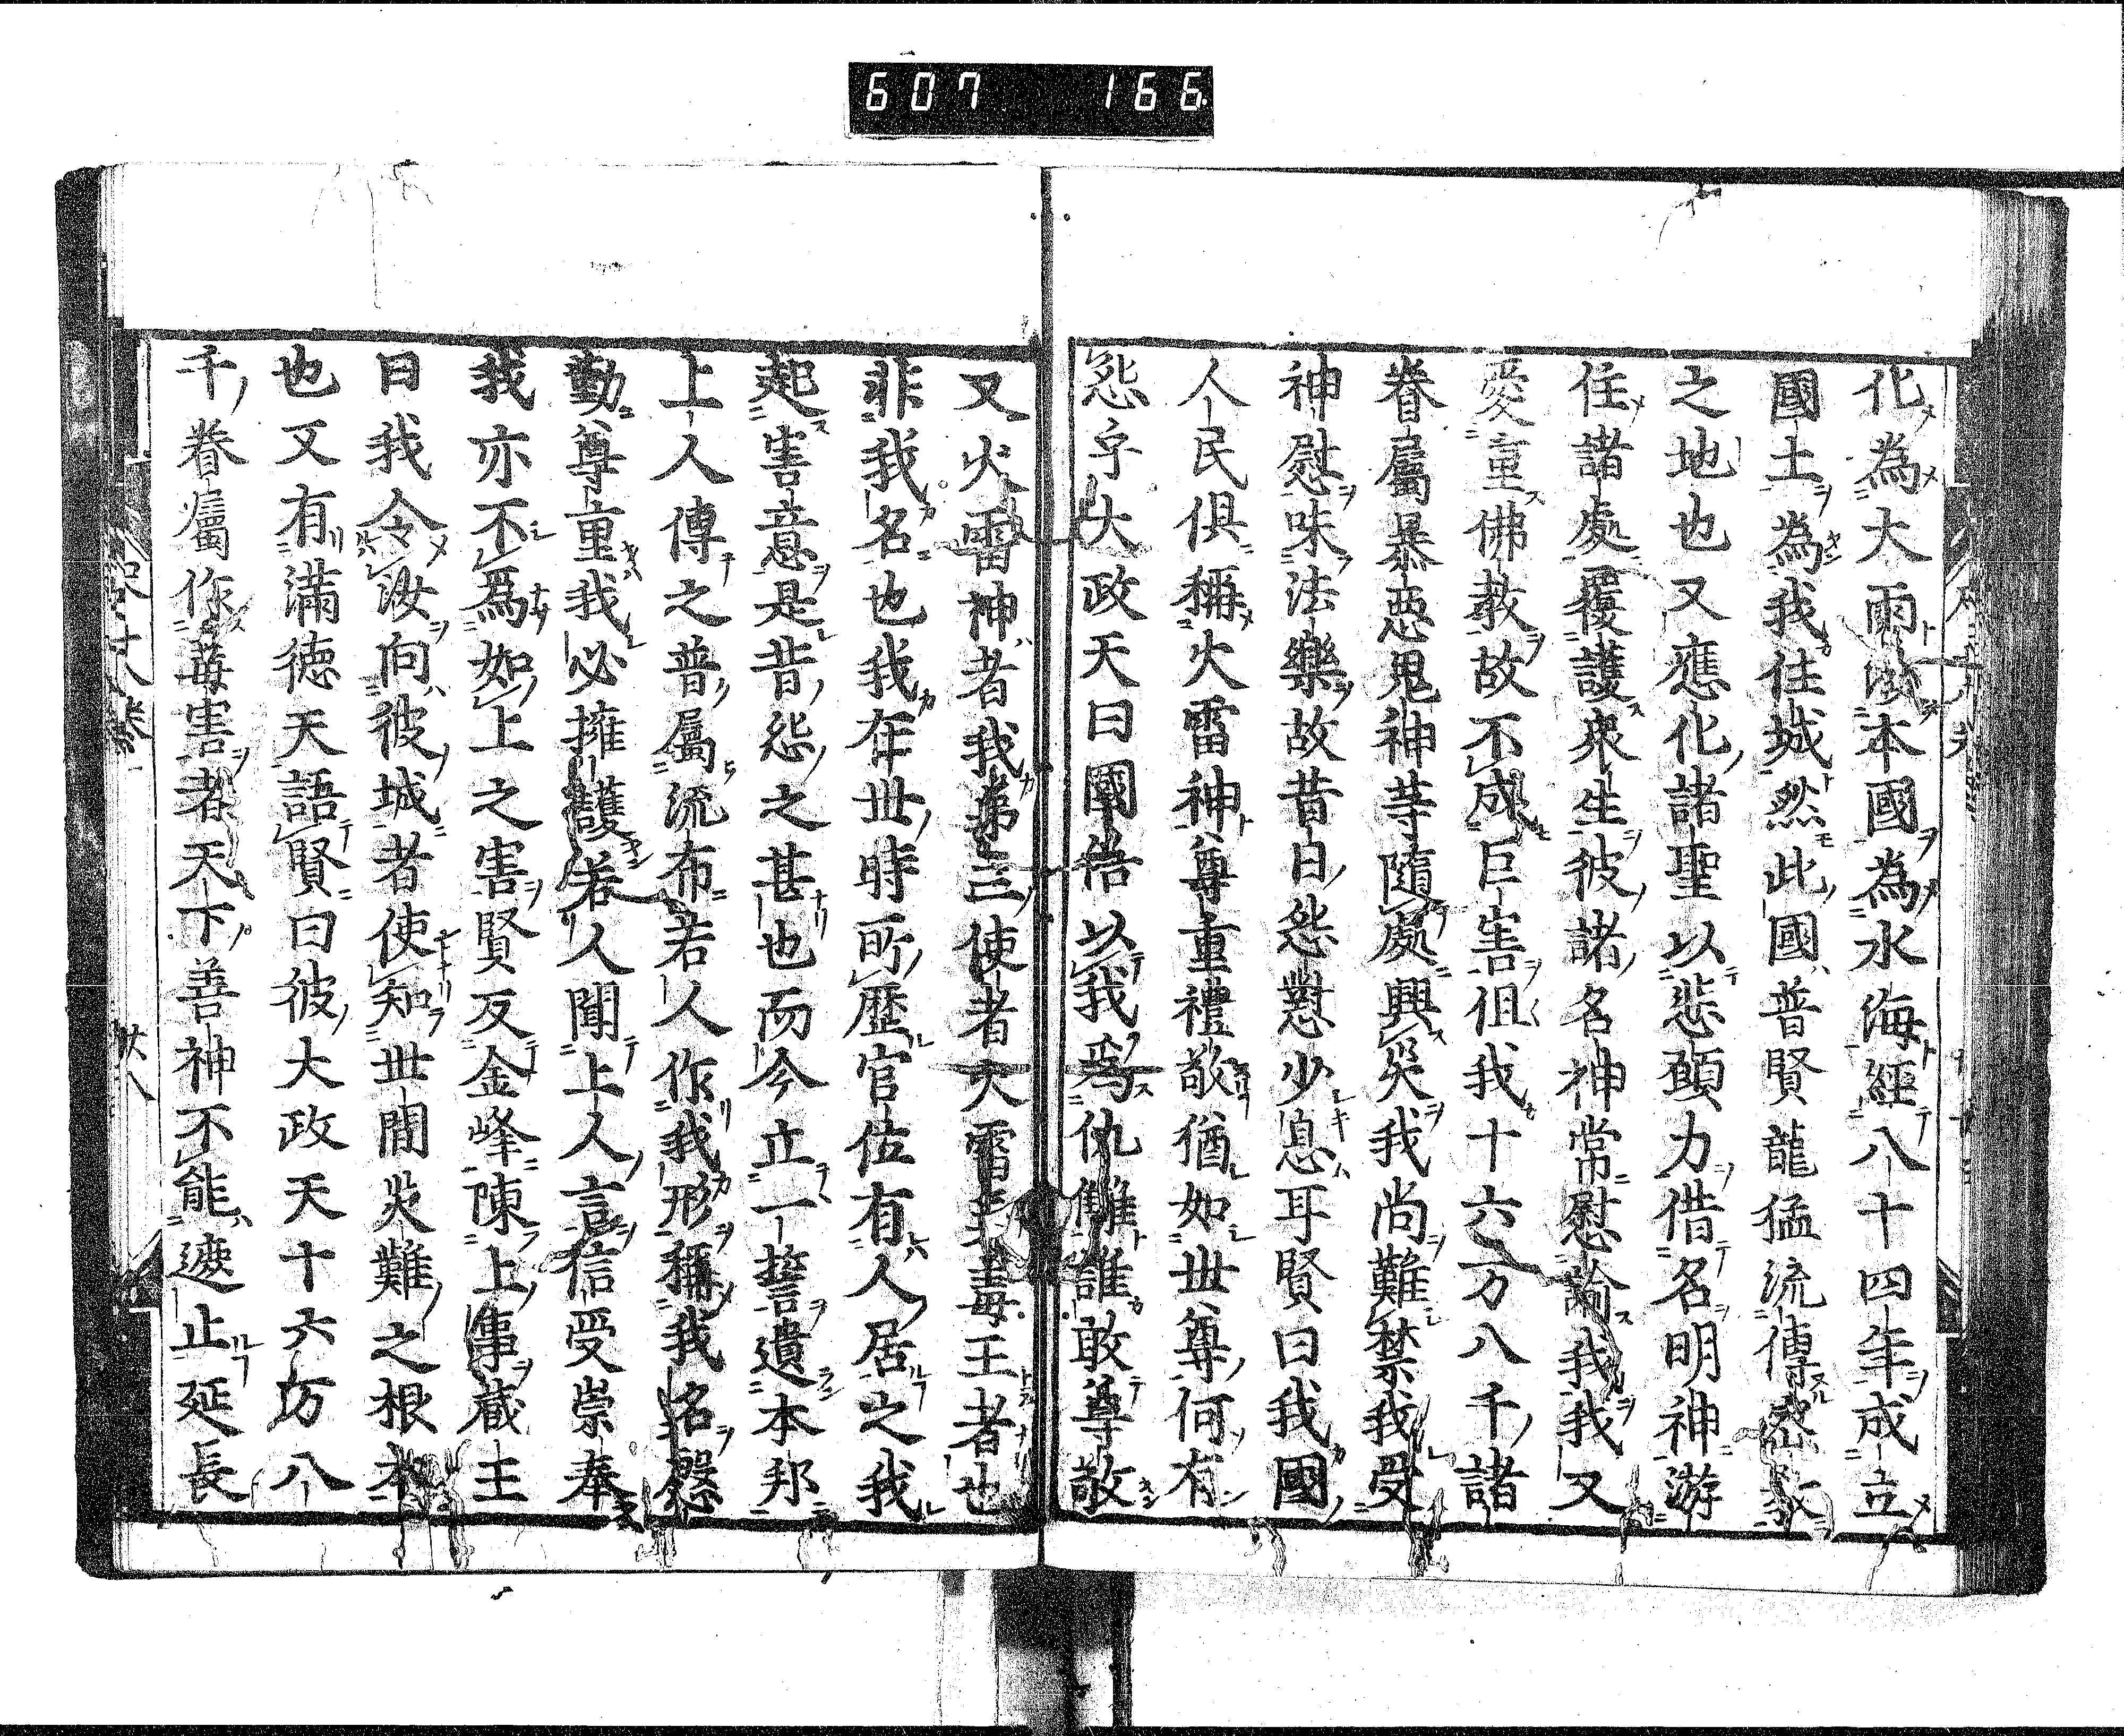 607 166
化為大雨澍本國為水海經八十四年成立
國土為我住城然此國普賢龍猛流傳密教
之地也又應化諸聖以悲願力借名明神游
住諸處覆護衆生彼諸名神常慰諭我我又
愛重佛教故不成巨害但我十六万八千諸
眷屬暴惡鬼神等隨處興災我尚難禁我受
神慰味法樂故昔日怨懟少息耳賢曰我國
人民俱稱火雷神尊重禮敬猶如世尊何有
怨乎大政天曰國俗以我為仇讎誰敢尊敬
又火雷神者我第三使者大雷毒王者也
非我名也我在世時所歷官位有人居之我
起害意是昔怨之甚也而今止一誓遺本邦
上人傳之普屬流布若人作我形稱我名慇
勤尊重我必擁護若人聞上人言信受崇奉
我亦不爲如上之害賢反金峰陳上事藏王
曰我令汝向彼城者使知世間災難之根本
也又有滿徳天語賢曰彼大政天十六万八
千眷屬作毒害者天下善神不能遮止延長